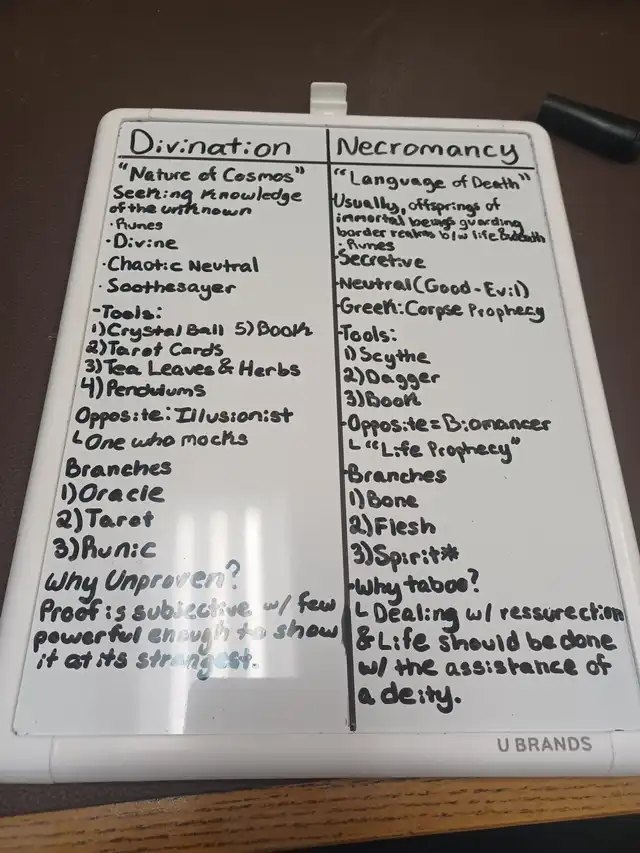 Divination
"Nature of Cosmos"
Seeking Knowledge
of the unknown
·Runes
·Divine
·Chaotic Neutral
·Soothesayer
-Tools:
1)Crystal Ball 5)Book
2)Tarot Cards
3)Tea Leaves & Herbs
4)Pendulums
Opposite: Illusionist
└One who mocks
Branches
1)Oracle
2)Tarot
3)Runic
Why Unproven?
Proof is subjective w/ few
powerful enough to show
it at its strongest.
Necromancy
"Language of Death"
Usually, offsprings of
immortal beings guarding
border realms b/w life & death
·Runes
-Secretive
-Neutral (Good-Evil)
-Greek: Corpse Prophecy
-Tools:
1)Scythe
2)Dagger
3)Book
-Opposite = Biomancer
└ "Life Prophecy"
-Branches
1)Bone
2)Flesh
3)Spirit*
-Why taboo?
└ Dealing w/ ressurection
& Life should be done
w/ the assistance of
a deity.
U BRANDS